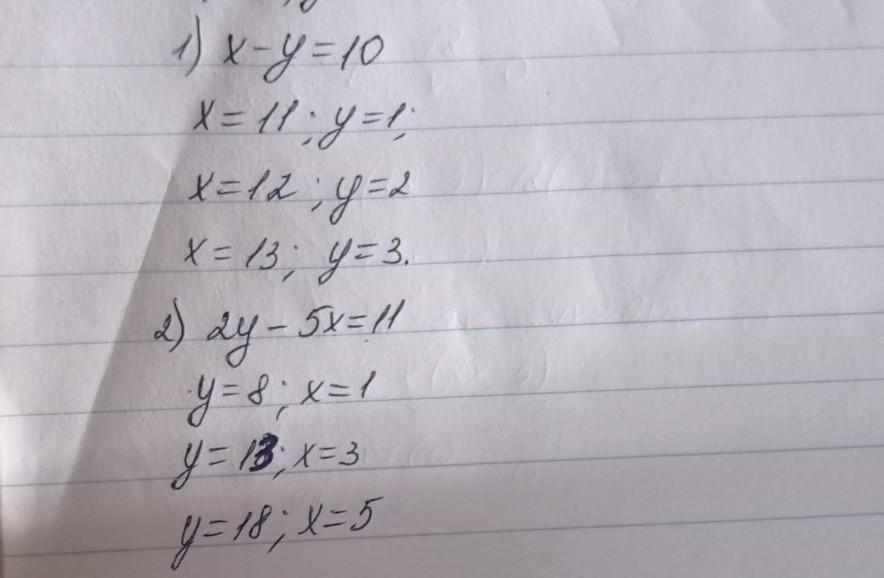 1) x-y=10
x=11; y=1;
x=12; y=2
x=13; y=3.
2) 2y-5x=11
y=8; x=1
y=13; x=3
y=18; x=5